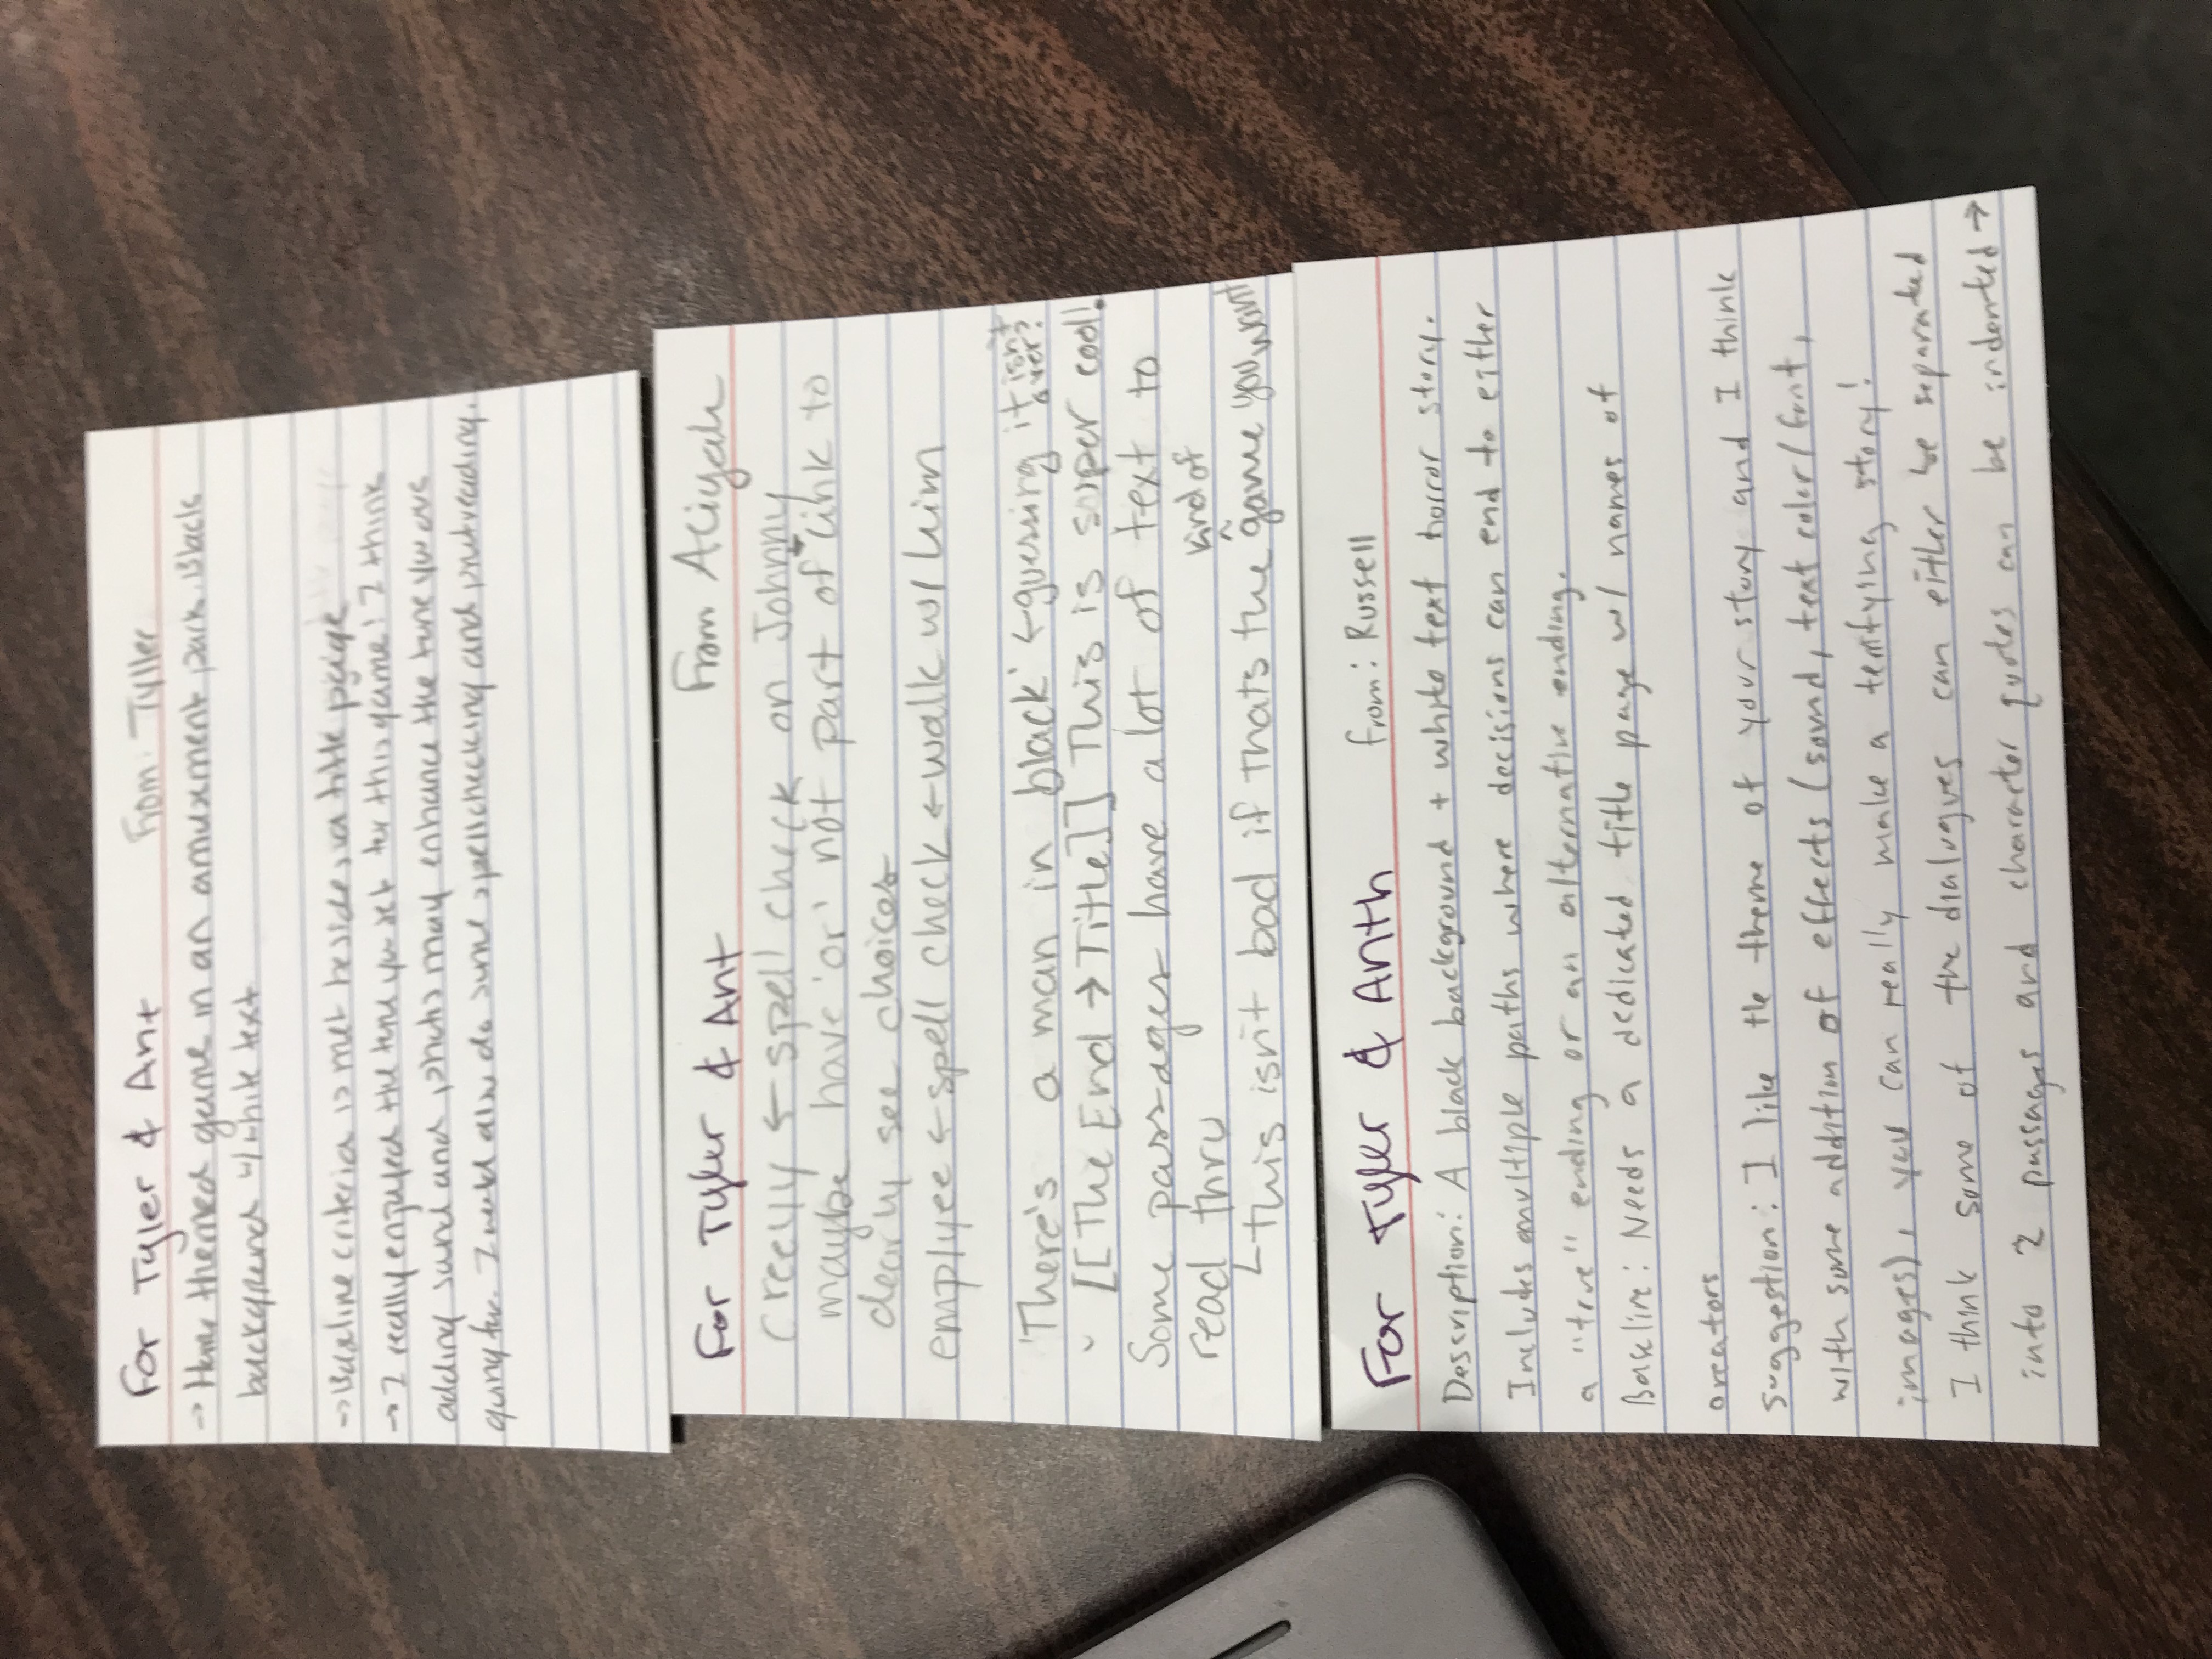 For Tyler & Ant From: Tyller
→ Horror themed game in an amusement park. Black
background w/ white text
→ Baseline criteria is met besides a title page
→ I really enjoyed the tone you set for this game! I think
adding sound and photos may enhance the tone you are
going for. I would also do some spellchecking and proofreading.
For Tyler & Ant From Aliyah
creelly ← spell check on Johnny
maybe have 'or' not part of link to
clearly see choices
emplyee ← spell check ← walk w/ him
'There's a man in black' ← guessing it isn't over?
[[The End → Title]] This is super cool!
Some passages have a lot of text to
read thru
kind of
↳ this isn't bad if thats the ^ game you want
For Tyler & Anth from: Russell
Description: A black background + white text horror story.
Includes multiple paths where decisions can end to either
a "true" ending or an alternative ending.
Baseline: Needs a dedicated title page w/ names of
creators
Suggestion: I like the theme of your story and I think
with some addition of effects (sound, text color/font,
images), you can really make a terrifying story!
I think some of the dialogues can either be separated
into 2 passages and character quotes can be indented →